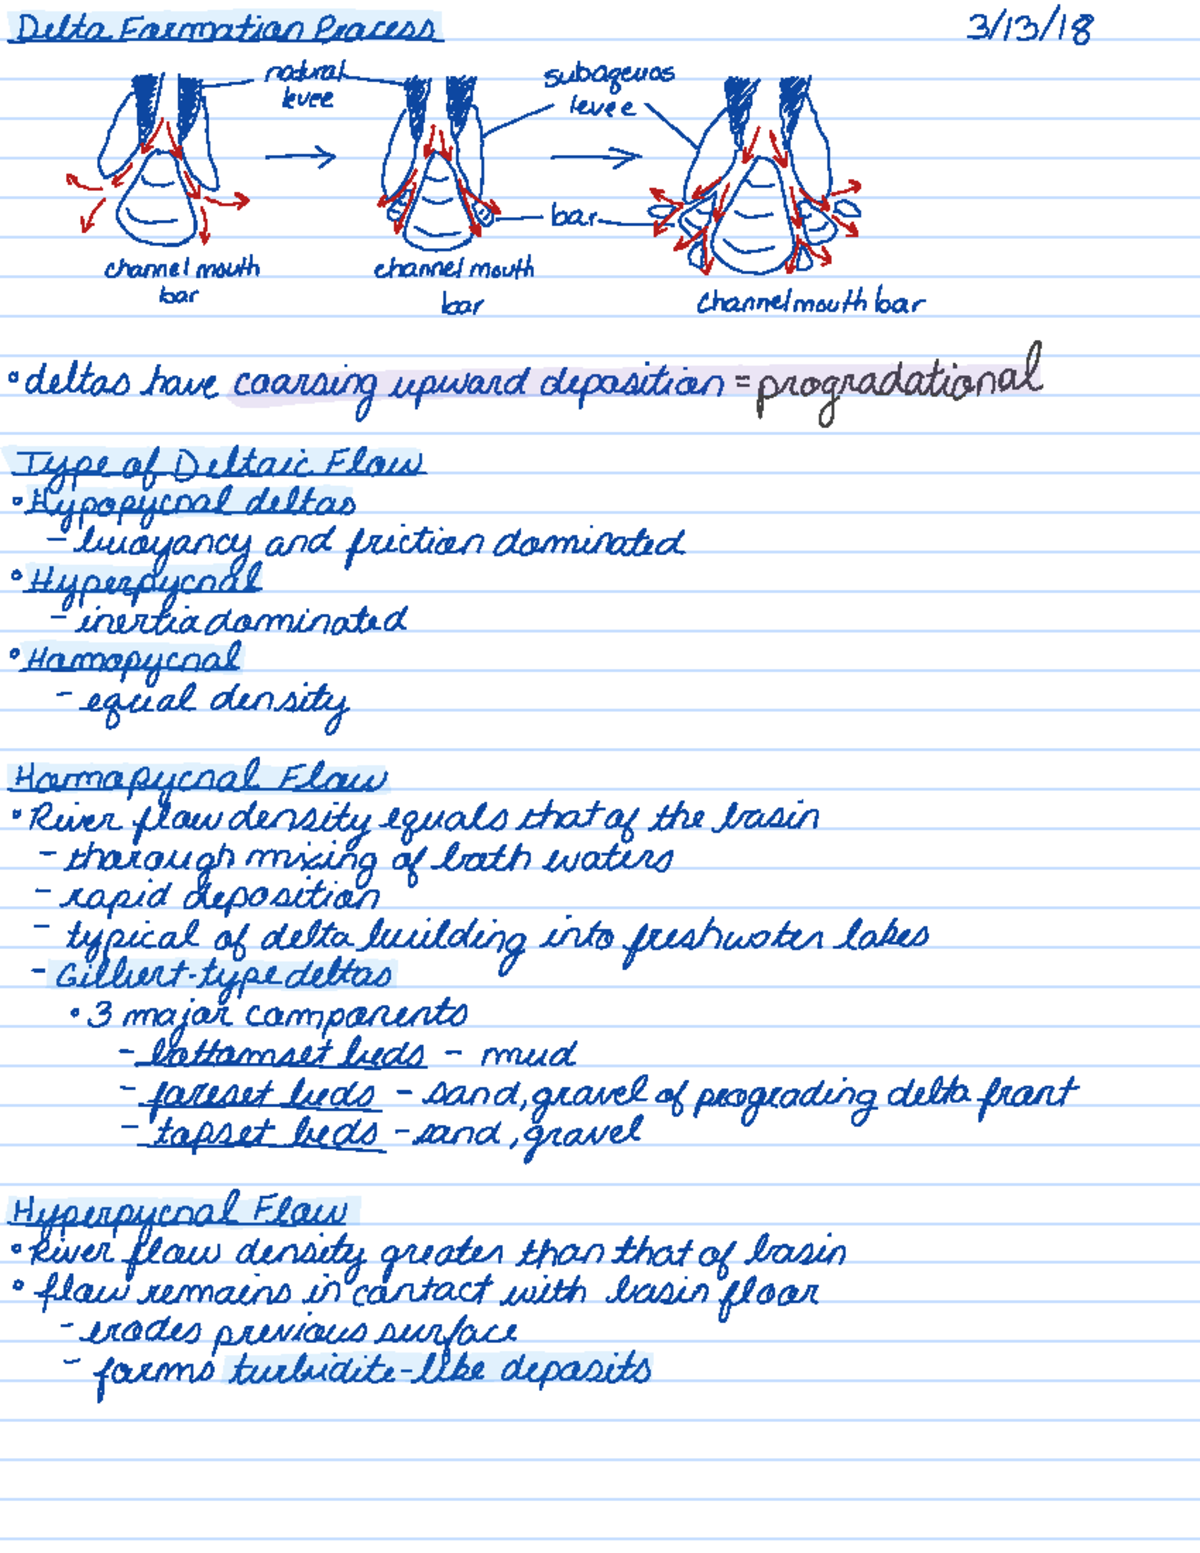 Delta Formation Process 3/13/18
natural levee
subaqeuos levee
bar
channel mouth bar
channel mouth bar
channel mouth bar
• deltas have coarsing upward deposition = progradational
Type of Deltaic Flow
• Hypopycnal deltas
- buoyancy and friction dominated
• Hyperpycnal
- inertia dominated
• Homopycnal
- equal density
Homopycnal Flow
• River flow density equals that of the basin
- thorough mixing of both waters
- rapid deposition
- typical of delta building into freshwater lakes
- Gilbert-type deltas
• 3 major components
- bottomset beds - mud
- foreset beds - sand, gravel of prograding delta front
- topset beds - sand, gravel
Hyperpycnal Flow
• River flow density greater than that of basin
• flow remains in contact with basin floor
- erodes previous surface
- forms turbidite-like deposits